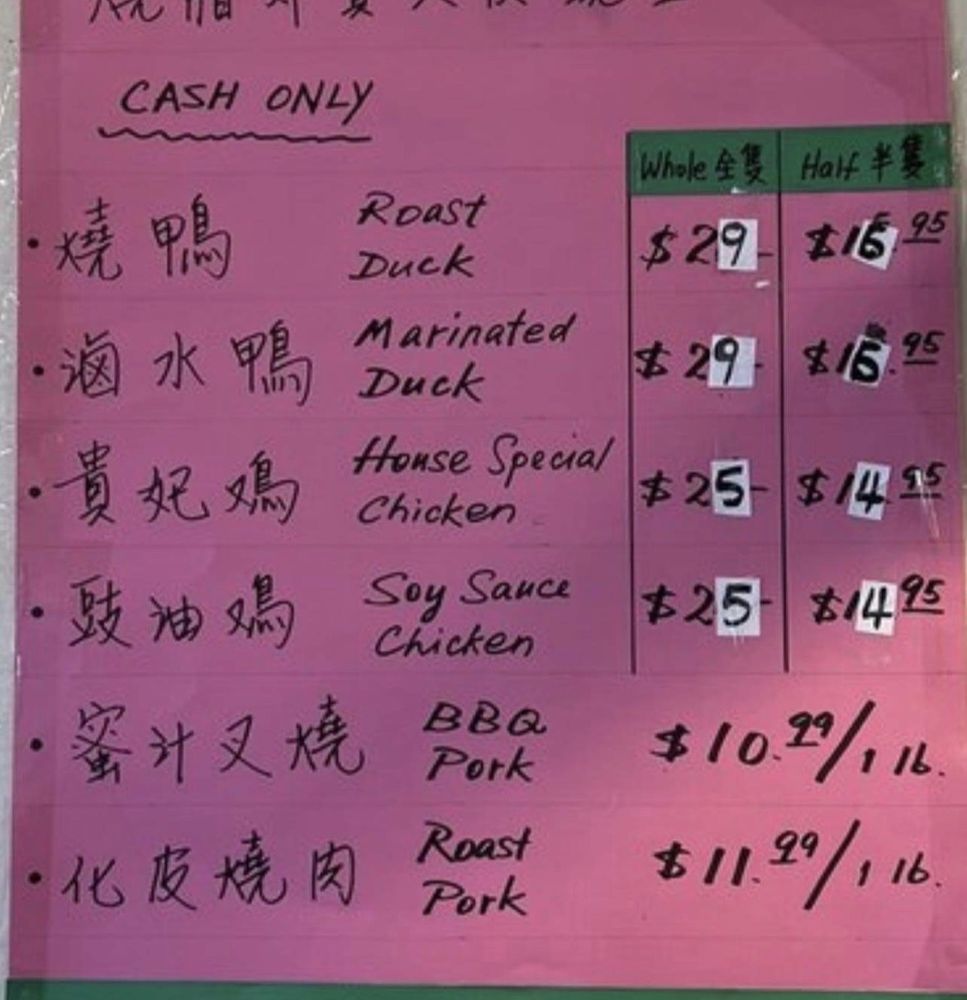 CASH ONLY
Whole 全隻 Half 半隻
• 燒鴨 Roast Duck $29- $16.95
• 滷水鴨 Marinated Duck $29- $16.95
• 貴妃鳮 House Special Chicken $25- $14.95
• 豉油鳮 Soy Sauce Chicken $25- $14.95
• 蜜汁叉燒 BBQ Pork $10.99/1 lb.
• 化皮燒肉 Roast Pork $11.99/1 lb.